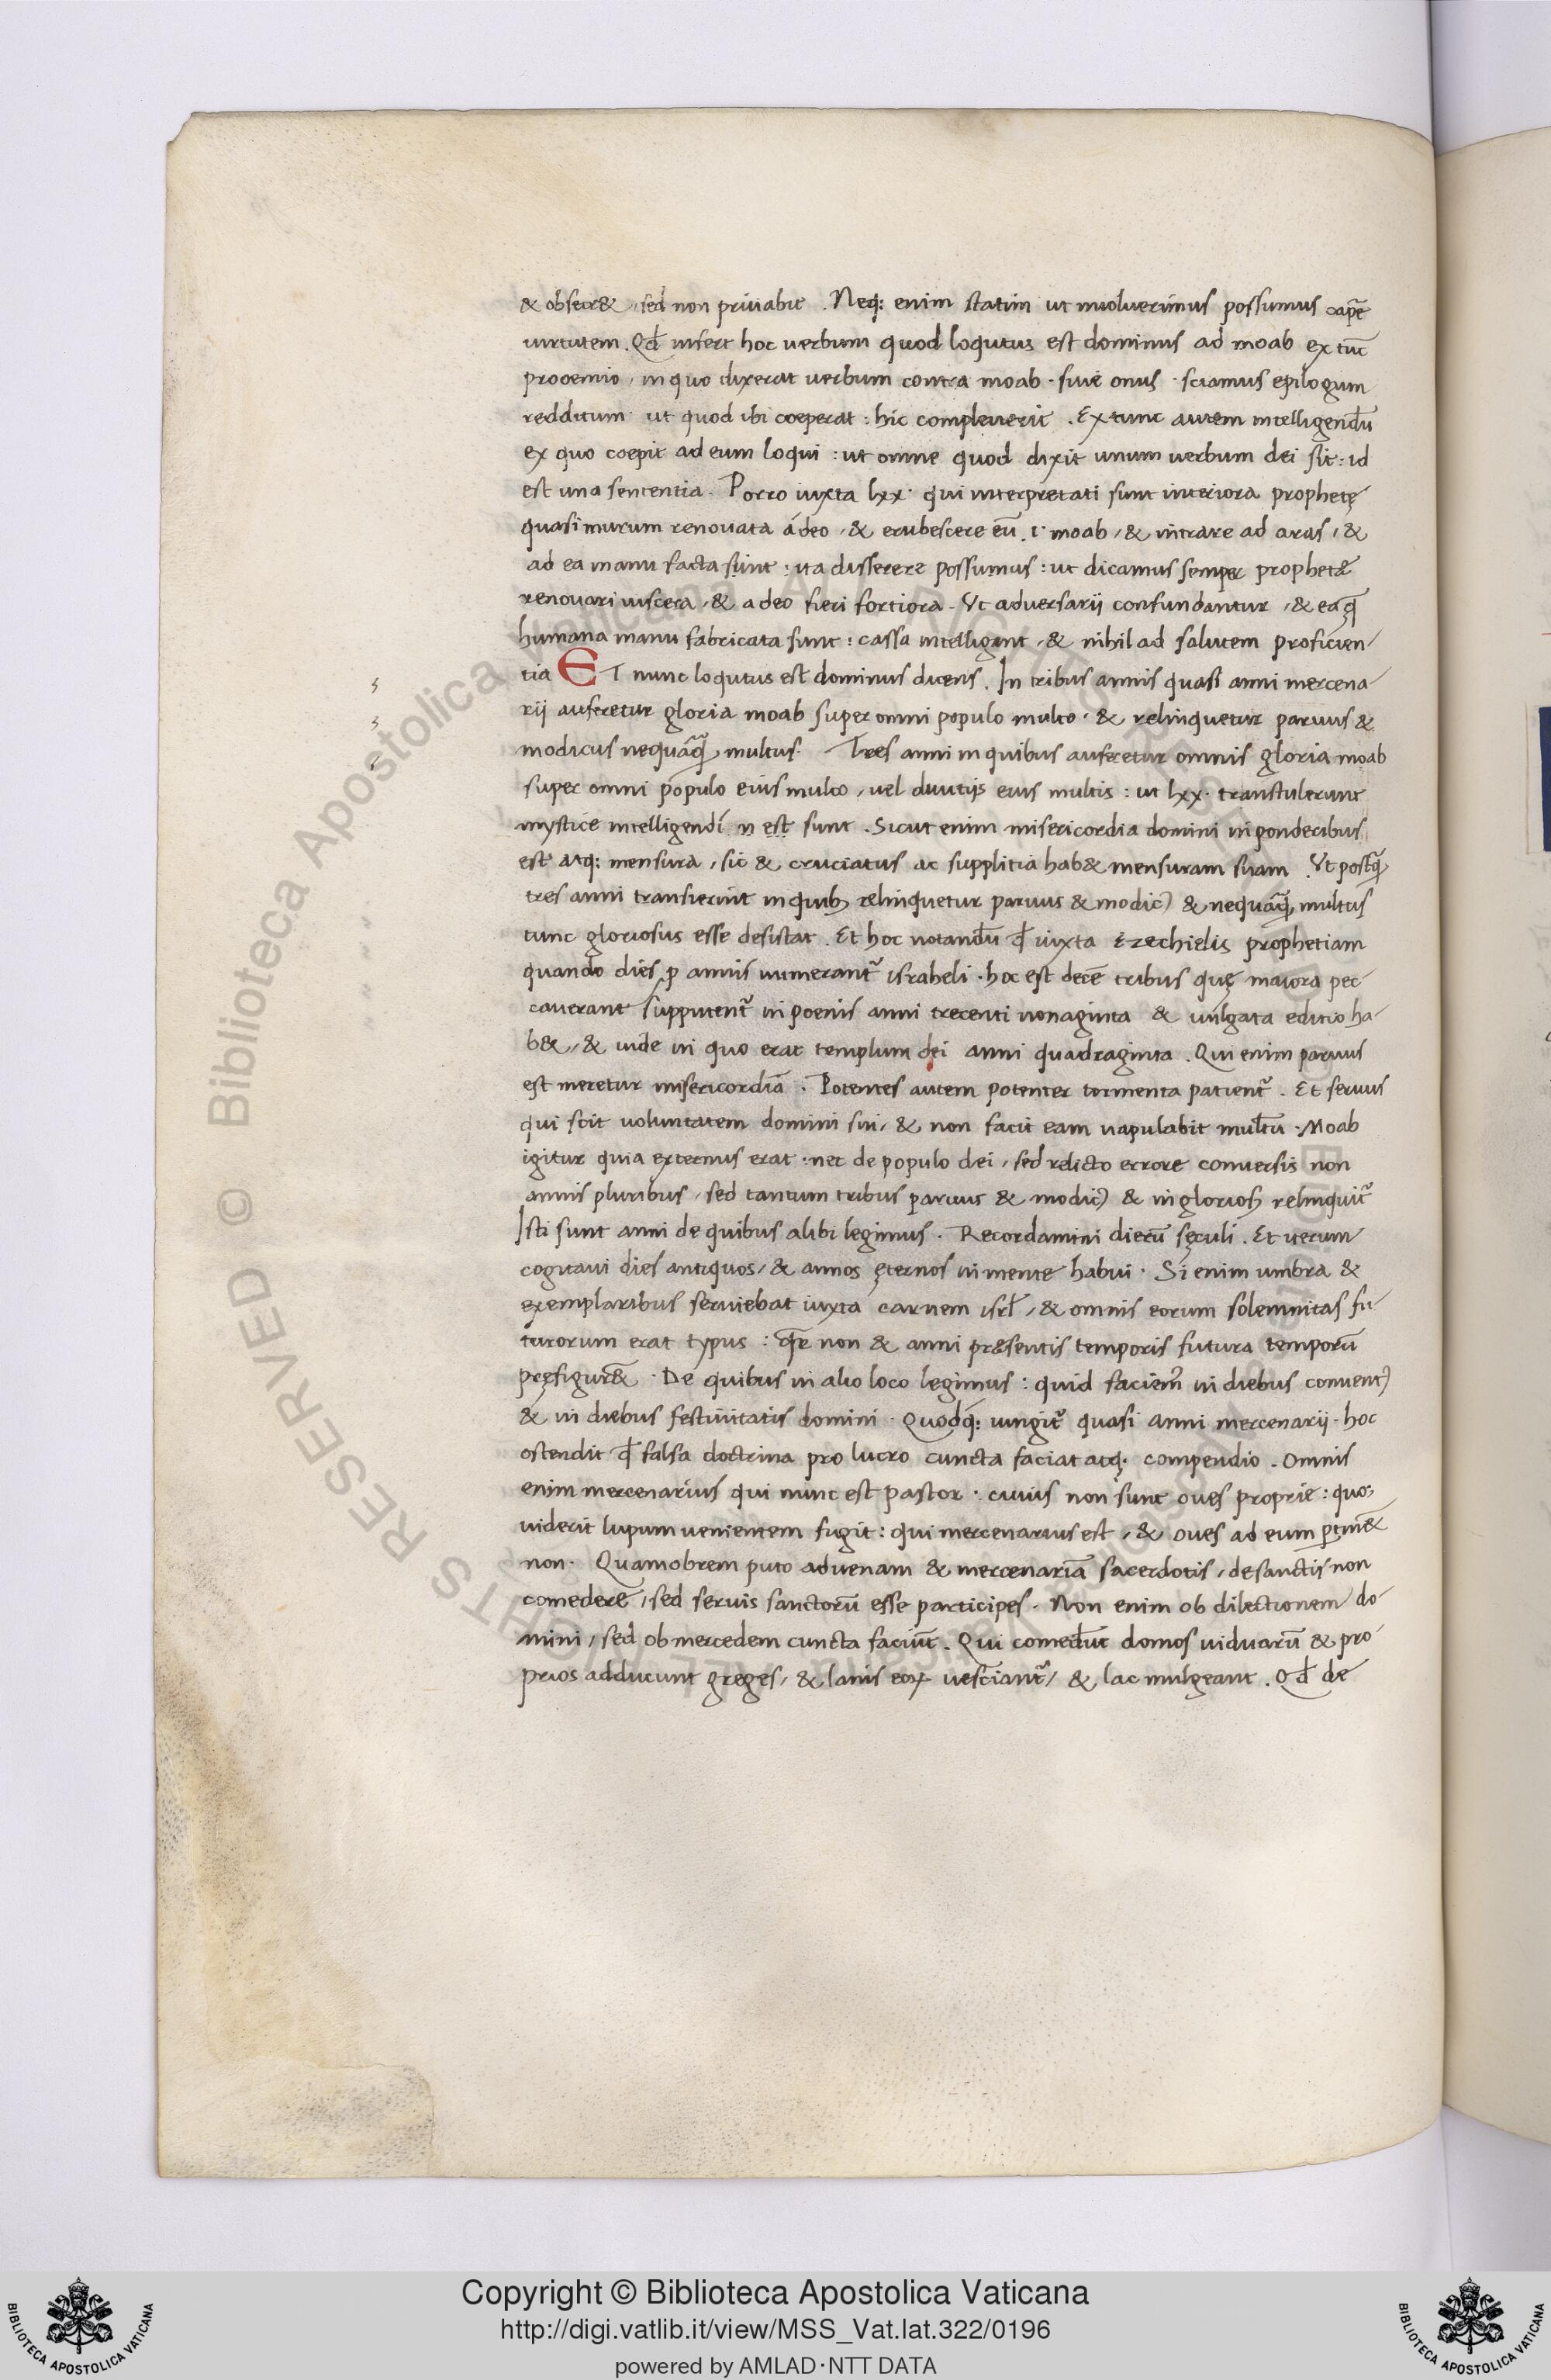 & obsecr& , sed non privabit . Neq; enim statim ut nuoluerimus possumus capē
uirtutem . Qđ infert hoc uerbum quod loqutus est dominus ad moab ex tūc
prooemio , in quo dixerat uerbum contra moab · siue onus · sciamus epilogum
redditum · ut quod ibi coeperat : hic compleuerit . Ex tunc autem intelligendū
ex quo coepit ad eum loqui : ut omne quod dixit unum uerbum dei sit : id
est una sententia . Porro iuxta lxx · qui interpretati sunt interiora prophetę
quasi murum renouata a deo , & erubescere eū . i · moab , & intrare ad aras , &
ad ea manu facta sunt : ita disserere possumus : ut dicamus semper prophetæ
renouari uiscera , & a deo fieri fortiora . Ut adversarij confundantur , & eaq̄
humana manu fabricata sunt : cassa intelligant , & nihil ad salutem proficien-
tia ET nunc loqutus est dominus dicens . In tribus annis quasi anni mercena-
rij auferetur gloria moab super omni populo multo · & relinquetur paruus &
modicus nequāq̄ multus . Tres anni in quibus auferetur omnis gloria moab
super omni populo eius multo , uel diuitijs eius multis : ut lxx · transtulerunt
mystice intelligendi n est sunt . Sicut enim misericordia domini in ponderibus
est atq; mensura , sic & cruciatus ac supplitia hab& mensuram suam . Ut postq̄
tres anni transierint in quib; relinquetur paruus & modic) & nequāq̄ multus
tunc gloriosus esse desistat . Et hoc notandū qđ iuxta Ezechielis prophetiam
quando dies p annis numerant᷑ israheli · hoc est decē tribus quę maiora pec-
cauerant supputent᷑ in poenis anni trecenti nonaginta & uulgata editio ha-
b& , & iude in quo erat templum dei anni quadraginta . Qui enim paruus
est meretur misericordiā . Potentes autem potenter tormenta patient᷑ . Et seruus
qui scit uoluntatem domini sui , & non facit eam uapulabit multū . Moab
igitur quia externus erat · nec de populo dei , sed relicto errore conuersis non
annis pluribus , sed tantum tribus paruus & modic) & inglorios; relinquit᷑
Isti sunt anni de quibus alibi legimus . Recordamini dierū sęculi . Et iterum
cogitaui dies antiquos , & annos ęternos in mente habui . Si enim umbra &
exemplaribus seruiebat iuxta carnem isrł , & omnis eorum solemnitas fu-
turorum erat typus : qr̄e non & anni præsentis temporis futura temporū
pręfigur& · De quibus in alio loco legimus : quid faciem᷑ in diebus conuent)
& in diebus festiuitatis domini . Quodq; iungit᷑ quasi anni mercenarij · hoc
ostendit qđ falsa doctrina pro lucro cuncta faciat atq; compendio . Omnis
enim mercenarius qui nunc est pastor · cuius non sunt oues proprie : quo;
uiderit lupum uenientem fugit : qui mercenarius est , & oues ad eum ꝑtin&
non . Quamobrem puto aduenam & mercenariā sacerdotis , de sanctis non
comedere , sed seruis sanctorū esse participes . Non enim ob dilectionem do-
mini , sed ob mercedem cuncta faciūt . Qui comedūt domos uiduarū & pro-
prios adducunt greges , & lanis eoꝝ uesciant᷑ , & lac mulgeant . Qđ de
© Biblioteca Apostolica Vaticana ALL RIGHTS RESERVED
Copyright © Biblioteca Apostolica Vaticana
http://digi.vatlib.it/view/MSS_Vat.lat.322/0196
powered by AMLAD·NTT DATA
BIBLIOTECA APOSTOLICA VATICANA
BIBLIOTECA APOSTOLICA VATICANA